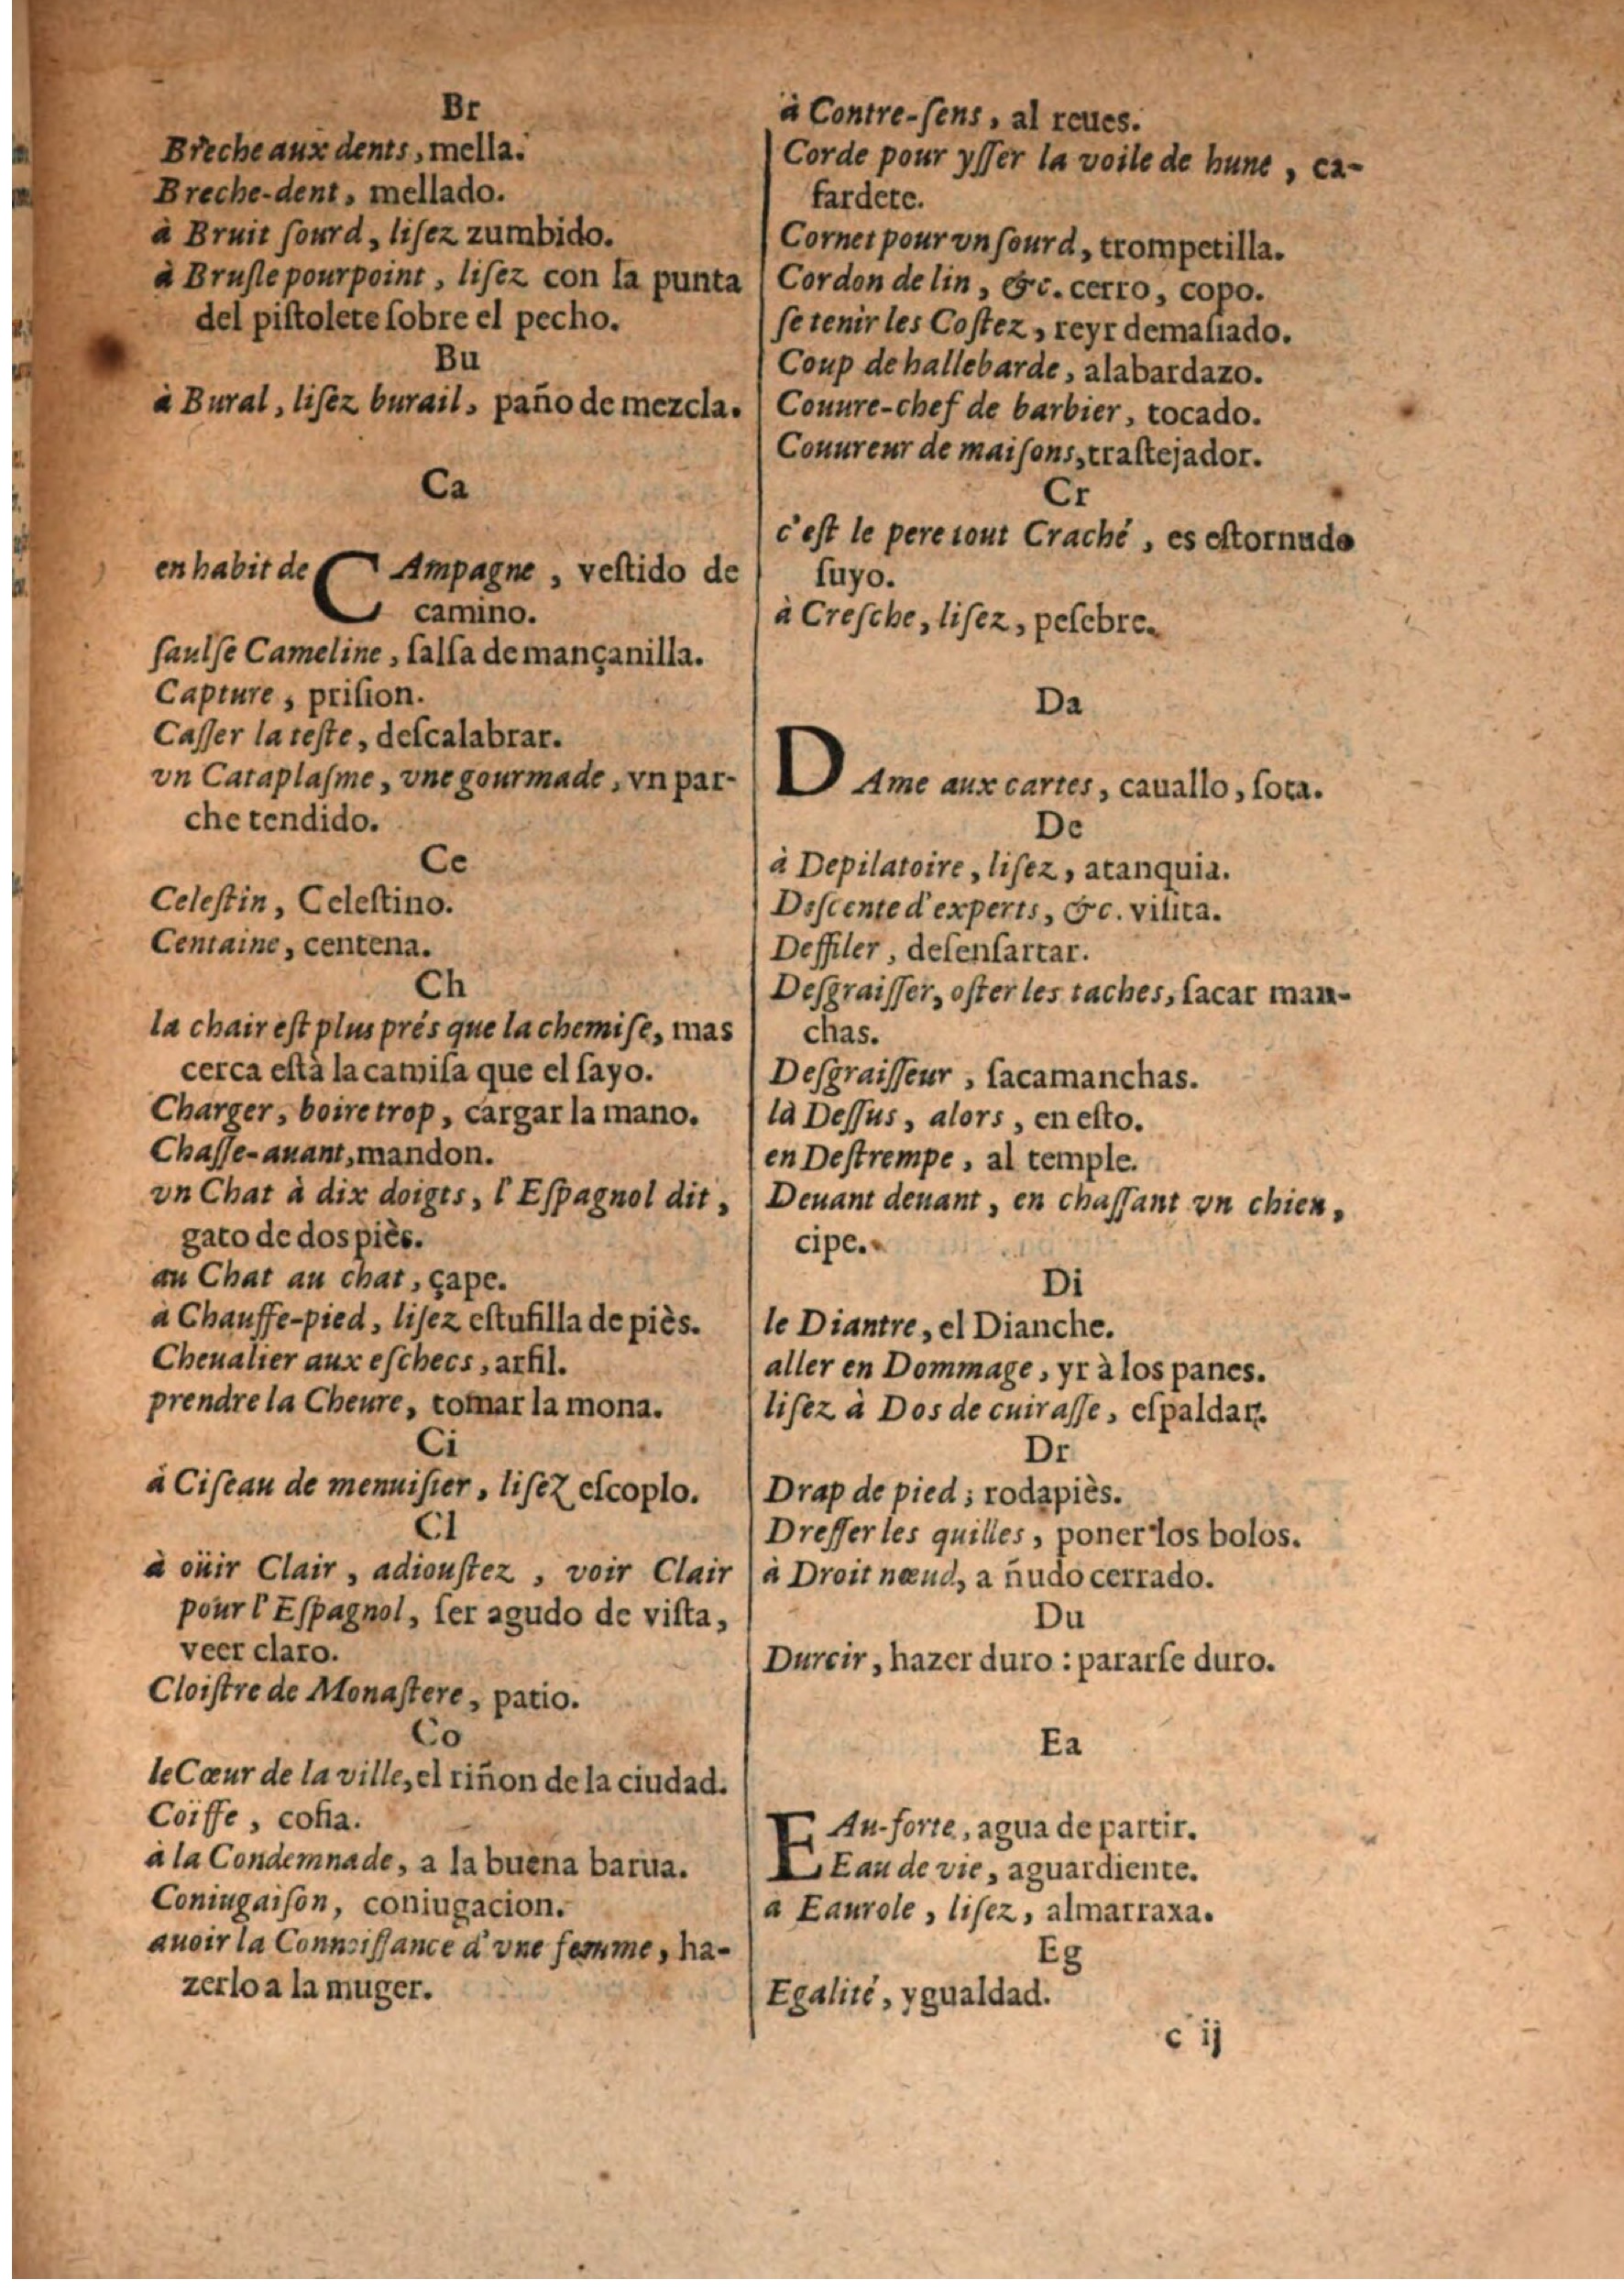 Br
Breche aux dents, mella.
Breche-dent, mellado.
à Bruit ſourd, liſez zumbido.
à Bruſle pourpoint, liſez con la punta
del piſtolete ſobre el pecho.
Bu
à Bural, liſez burail, paño de mezcla.
Ca
en habit de CAmpagne, veſtido de
camino.
ſaulſe Cameline, ſalſa de mançanilla.
Capture, priſion.
Caſſer la teſte, deſcalabrar.
vn Cataplaſme, vne gourmade, vn par-
che tendido.
Ce
Celeſtin, Celeſtino.
Centaine, centena.
Ch
la chair eſt plus prés que la chemiſe, mas
cerca eſtà la camiſa que el ſayo.
Charger, boire trop, cargar la mano.
Chaſſe-auant, mandon.
vn Chat à dix doigts, l'Eſpagnol dit,
gato de dos piès.
au Chat au chat, çape.
à Chauffe-pied, liſez eſtufilla de piès.
Cheualier aux eſchecs, arfil.
prendre la Cheure, tomar la mona.
Ci
à Ciſeau de menuiſier, liſez eſcoplo.
Cl
à oüir Clair, adiouſtez, voir Clair
pour l'Eſpagnol, ſer agudo de viſta,
veer claro.
Cloiſtre de Monaſtere, patio.
Co
le Cœur de la ville, el riñon de la ciudad.
Coïffe, cofia.
à la Condemnade, a la buena barua.
Coniugaiſon, coniugacion.
auoir la Connoiſſance d'vne femme, ha-
zerlo a la muger.
à Contre-ſens, al reues.
Corde pour yſſer la voile de hune, ca-
fardete.
Cornet pour vn ſourd, trompetilla.
Cordon de lin, &c. cerro, copo.
ſe tenir les Coſtez, reyr demaſiado.
Coup de hallebarde, alabardazo.
Couure-chef de barbier, tocado.
Couureur de maiſons, traſtejador.
Cr
c'eſt le pere tout Craché, es eſtornudo
ſuyo.
à Creſche, liſez, peſebre.
Da
DAme aux cartes, cauallo, ſota.
De
à Depilatoire, liſez, atanquia.
Deſcente d'experts, &c. viſita.
Deffiler, deſenſartar.
Deſgraiſſer, oſter les taches, ſacar man-
chas.
Deſgraiſſeur, ſacamanchas.
là Deſſus, alors, en eſto.
en Deſtrempe, al temple.
Deuant deuant, en chaſſant vn chien,
cipe.
Di
le Diantre, el Dianche.
aller en Dommage, yr à los panes.
liſez à Dos de cuiraſſe, eſpaldar.
Dr
Drap de pied; rodapiès.
Dreſſer les quilles, poner los bolos.
à Droit nœud, a ñudo cerrado.
Du
Durcir, hazer duro : pararſe duro.
Ea
EAu-forte, agua de partir.
Eau de vie, aguardiente.
a Eaurole, liſez, almarraxa.
Eg
Egalité, ygualdad.
c ij